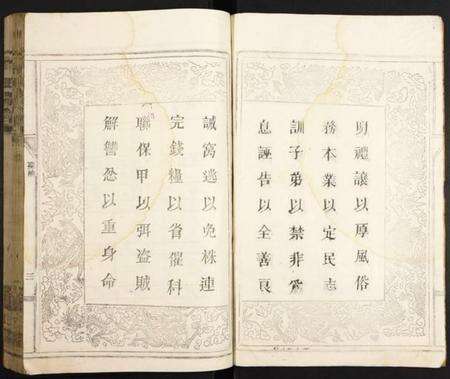 明禮讓以厚風俗
務本業以定民志
訓子弟以禁非爲
息誣告以全善良
誡窩逃以免株連
完錢糧以省催科
聯保甲以弭盜賊
解讐忿以重身命
三